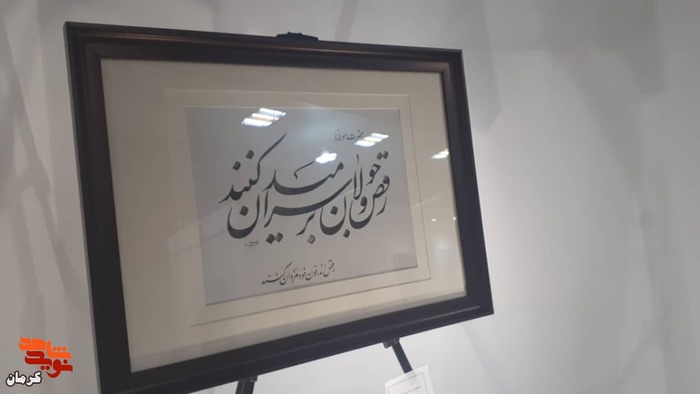 حضرت مولانا
رقص و جولان بر سر میدان کنند
رقص اندر خون خود مردان کنند
نوید شاهد
کرمان